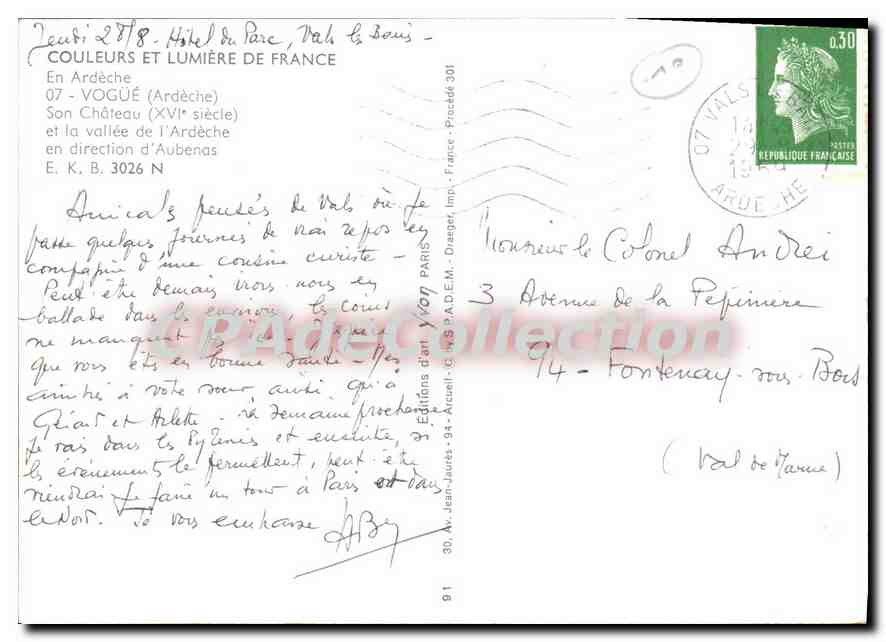 Jeudi 28/8 - Hôtel du Parc, Vals les Bains -
COULEURS ET LUMIÈRE DE FRANCE
En Ardèche
07 - VOGÜÉ (Ardèche)
Son Château (XVIe siècle)
et la vallée de l'Ardèche
en direction d'Aubenas
E. K. B. 3026 N
Amicales pensées de Vals où je
passe quelques journées de vrai repos en
compagnie d'une cousine curiste -
Peut être demain irons nous en
ballade dans les environs, les coins
ne manquent pas. J'espère
que vous êtes en bonne santé - Mes
amitiés à votre soeur ainsi qu'à
Gérard et Arlette - La semaine prochaine
je vais dans les Pyrénées et ensuite, si
les événements le permettent, peut être
viendrai-je faire un tour à Paris et dans
le Nord. Je vous embrasse
Éditions d'art Yvon PARIS
30, Av. Jean-Jaurès - 94 - Arcueil - C. by S.P.A.D.E.M. - Draeger, Imp. - France - Procédé 301
91
0,30
POSTES
REPUBLIQUE FRANÇAISE
07 VALS
1969
ARDECHE
Monsieur le Colonel Andrei
3 Avenue de la Pépinière
94 - Fontenay-sous-Bois
(Val de Marne)
CPAdeCollection